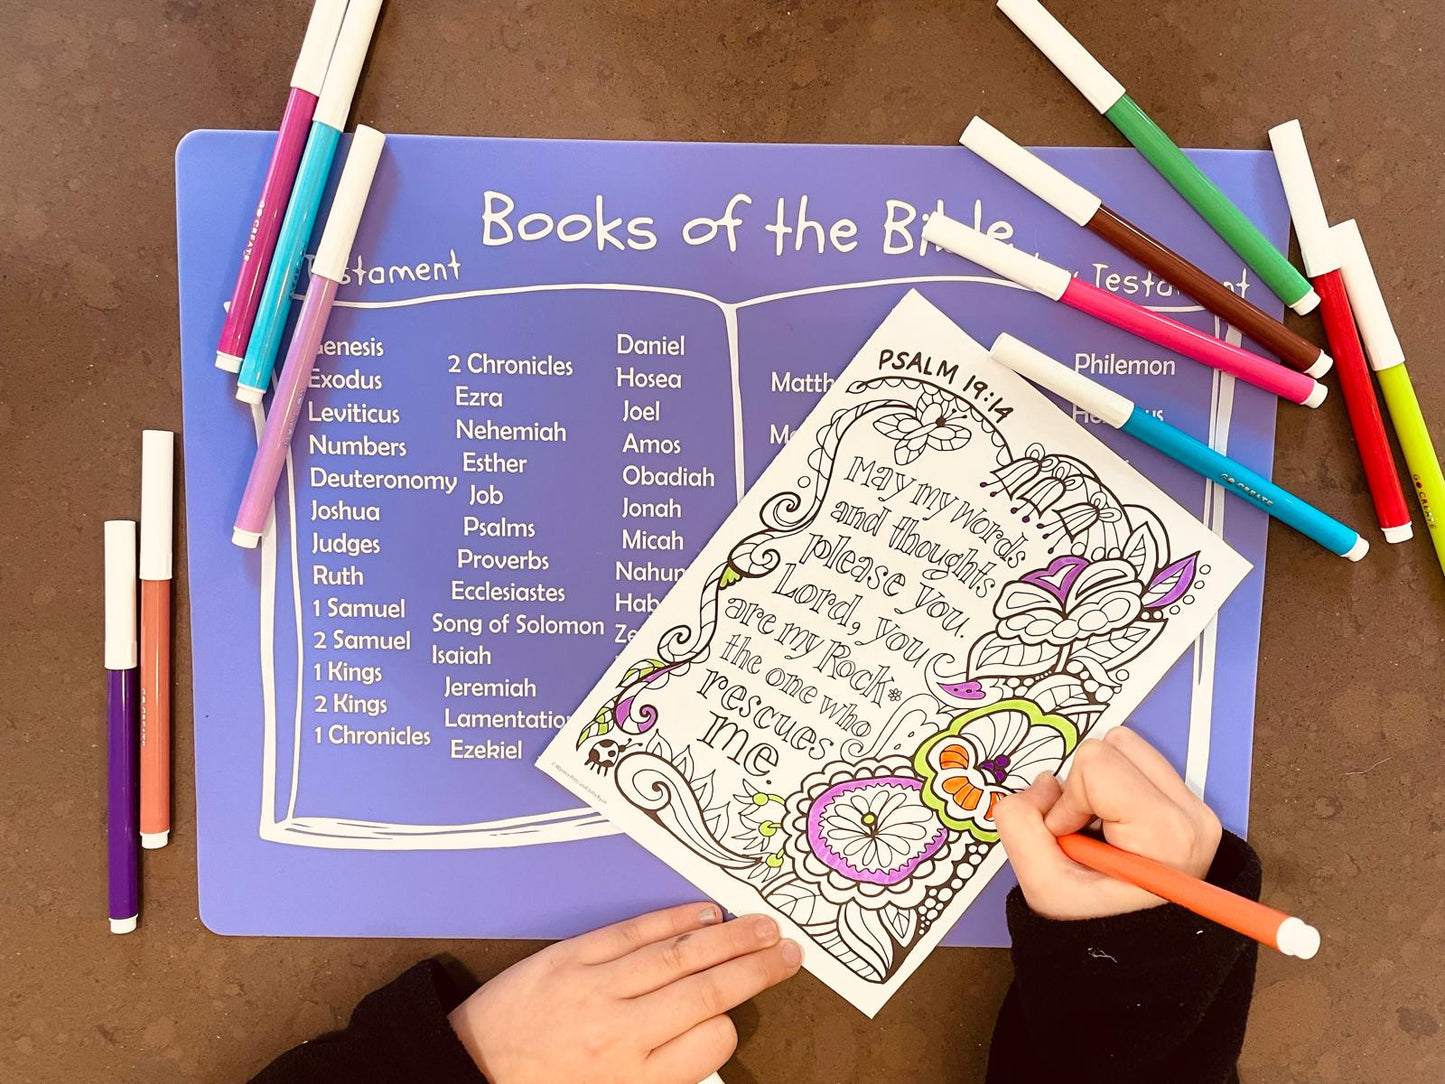 Books of the Bible
Testament
Testament
Genesis
Exodus
Leviticus
Numbers
Deuteronomy
Joshua
Judges
Ruth
1 Samuel
2 Samuel
1 Kings
2 Kings
1 Chronicles
2 Chronicles
Ezra
Nehemiah
Esther
Job
Psalms
Proverbs
Ecclesiastes
Song of Solomon
Isaiah
Jeremiah
Lamentation
Ezekiel
Daniel
Hosea
Joel
Amos
Obadiah
Jonah
Micah
Nahum
Hab
Ze
Matth
Philemon
PSALM 19:14
May my words
and thoughts
please you.
Lord, you
are my Rock
the one who
rescues
me.
GO CREATE
GO CREATE
GO CREATE
GO CREATE